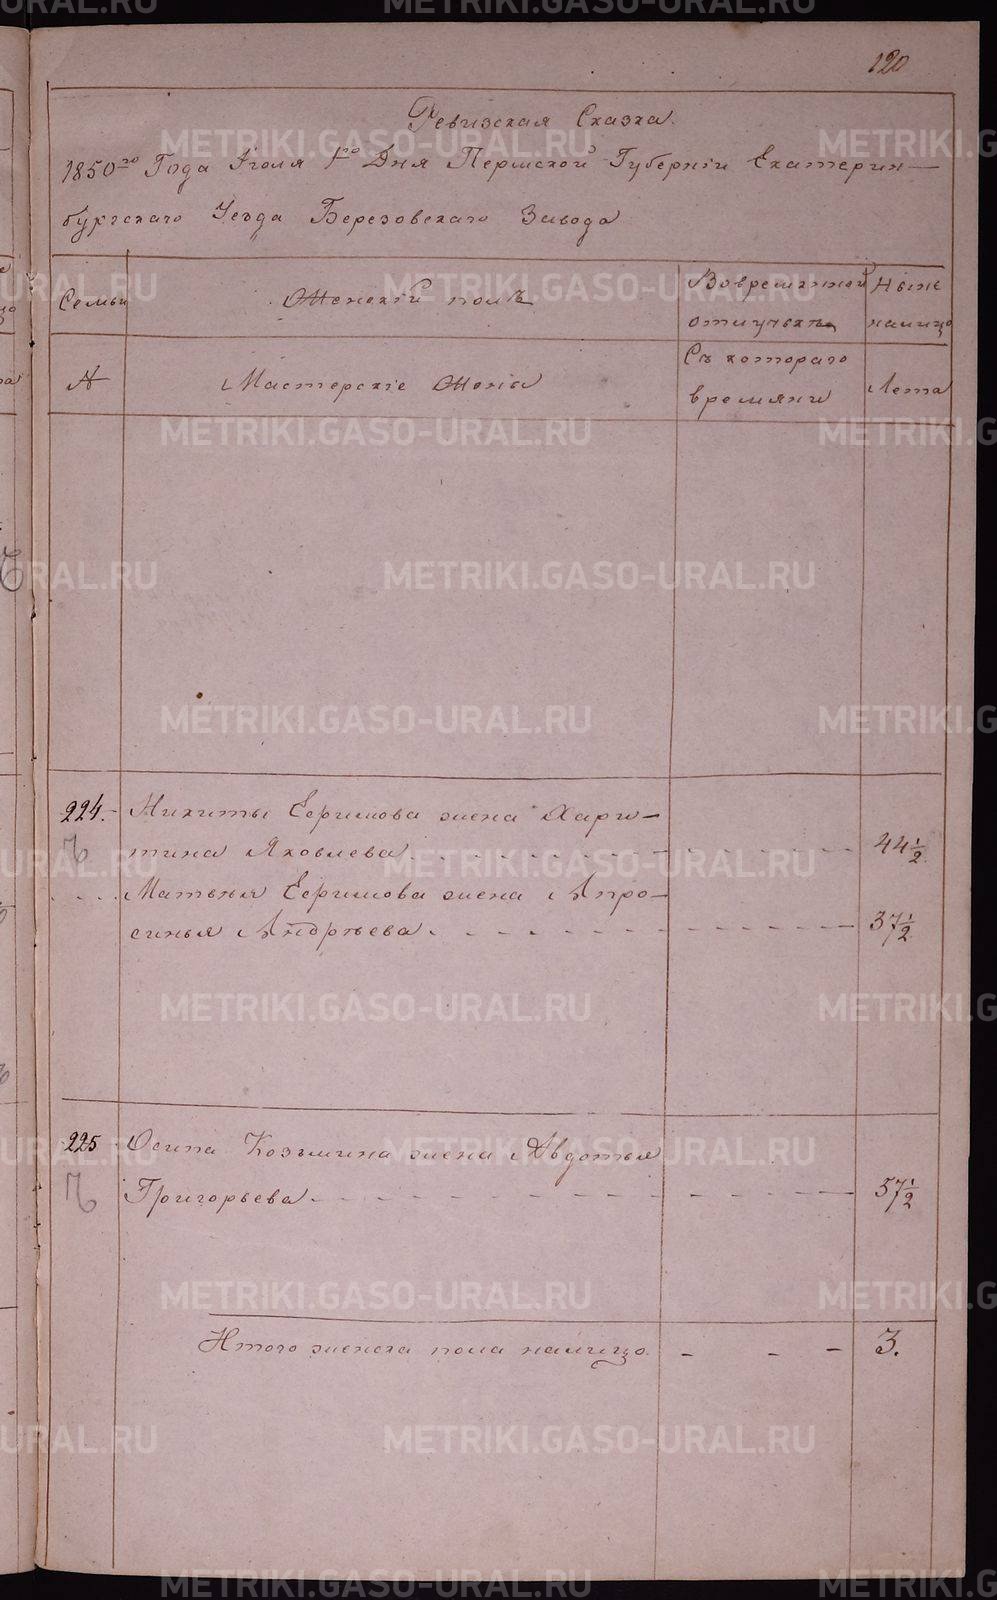 120
Ревизская Сказка.
1850го Года Iюля 1го Дня Пермской Губернiи Екатерин-
бургскаго Уезда Березовскаго Завода
Семьи
Женскiй полъ
Вовременной
отлучкѣ
Нынѣ
налицо
№
Мастерскiе Жоны
Съ котораго
времяни
Лета
224.
Никиты Ефимова жена Хари-
тина Яковлева
44 1/2
Матвѣя Ефимова жена Апро-
синья Андрѣева
37 1/2
225
Осипа Козьмина жена Авдотья
Григорьева
57 1/2
Итого женска пола налицо
3.
METRIKI.GASO-URAL.RU